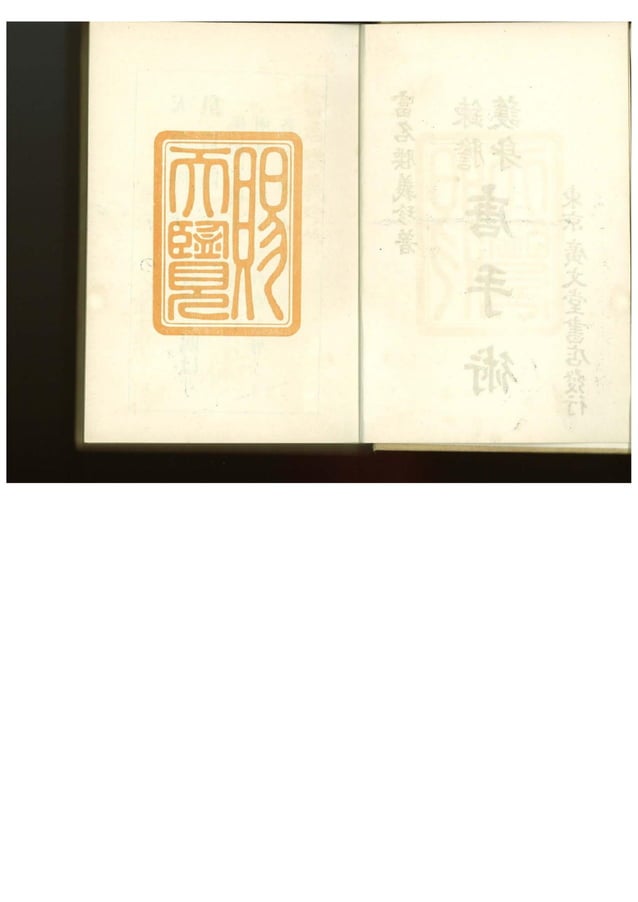 富名腰義珍著
錬膽
護身
唐手術
東京 廣文堂書店發行
賜
天覽